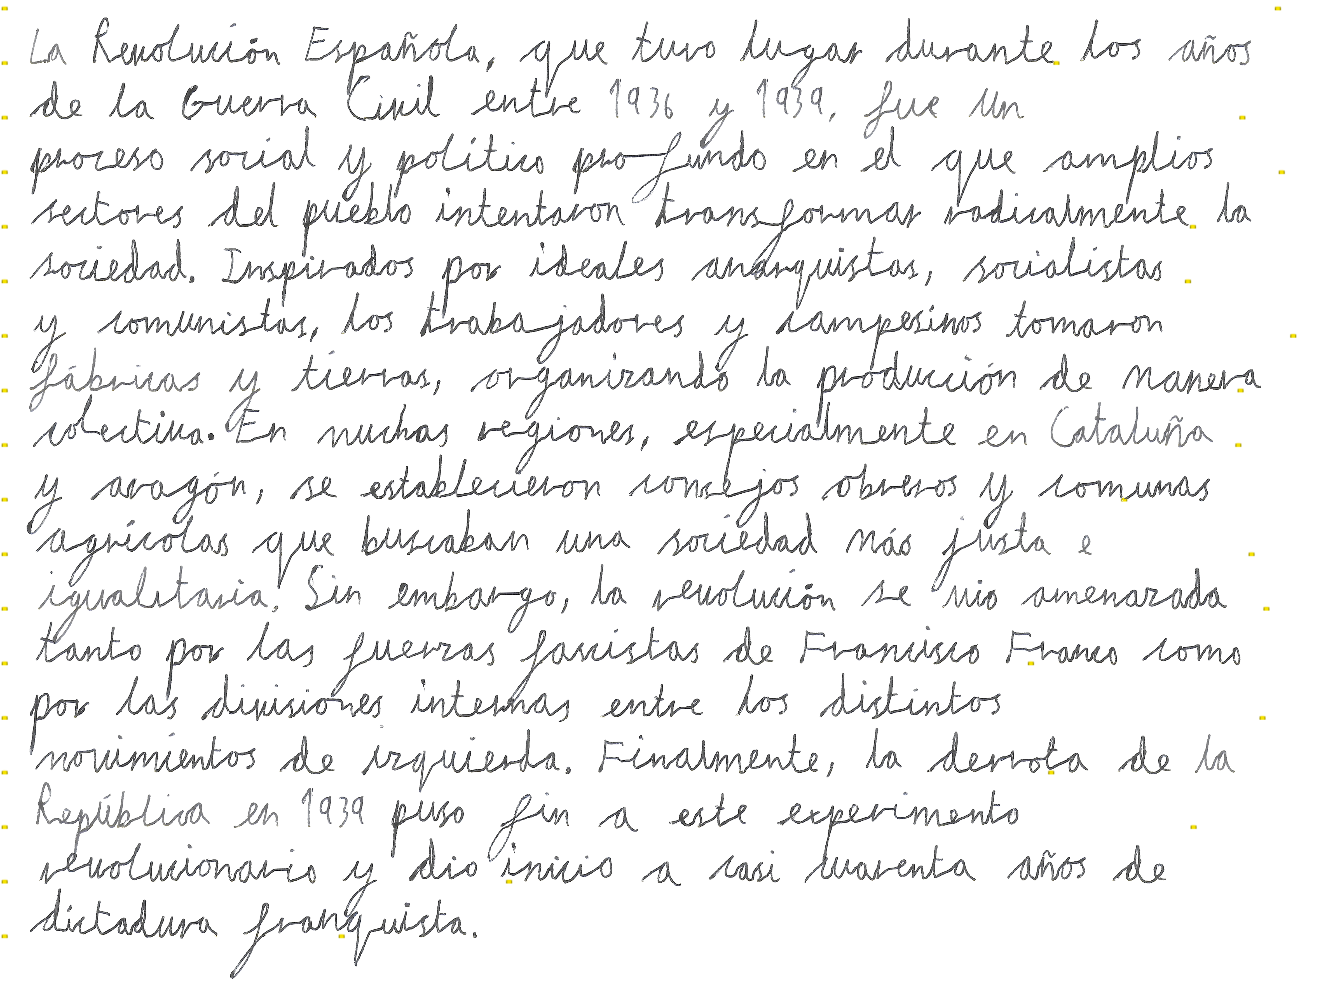 La Revolución Española, que tuvo lugar durante los años
de la Guerra Civil entre 1936 y 1939, fue un
proceso social y político profundo en el que amplios
sectores del pueblo intentaron transformar radicalmente la
sociedad. Inspirados por ideales anarquistas, socialistas
y comunistas, los trabajadores y campesinos tomaron
fábricas y tierras, organizando la producción de manera
colectiva. En muchas regiones, especialmente en Cataluña
y aragón, se establecieron consejos obreros y comunas
agrícolas que buscaban una sociedad más justa e
igualitaria. Sin embargo, la revolución se vio amenazada
tanto por las fuerzas fascistas de Francisco Franco como
por las divisiones internas entre los distintos
movimientos de izquierda. Finalmente, la derrota de la
República en 1939 puso fin a este experimento
revolucionario y dio inicio a casi cuarenta años de
dictadura franquista.